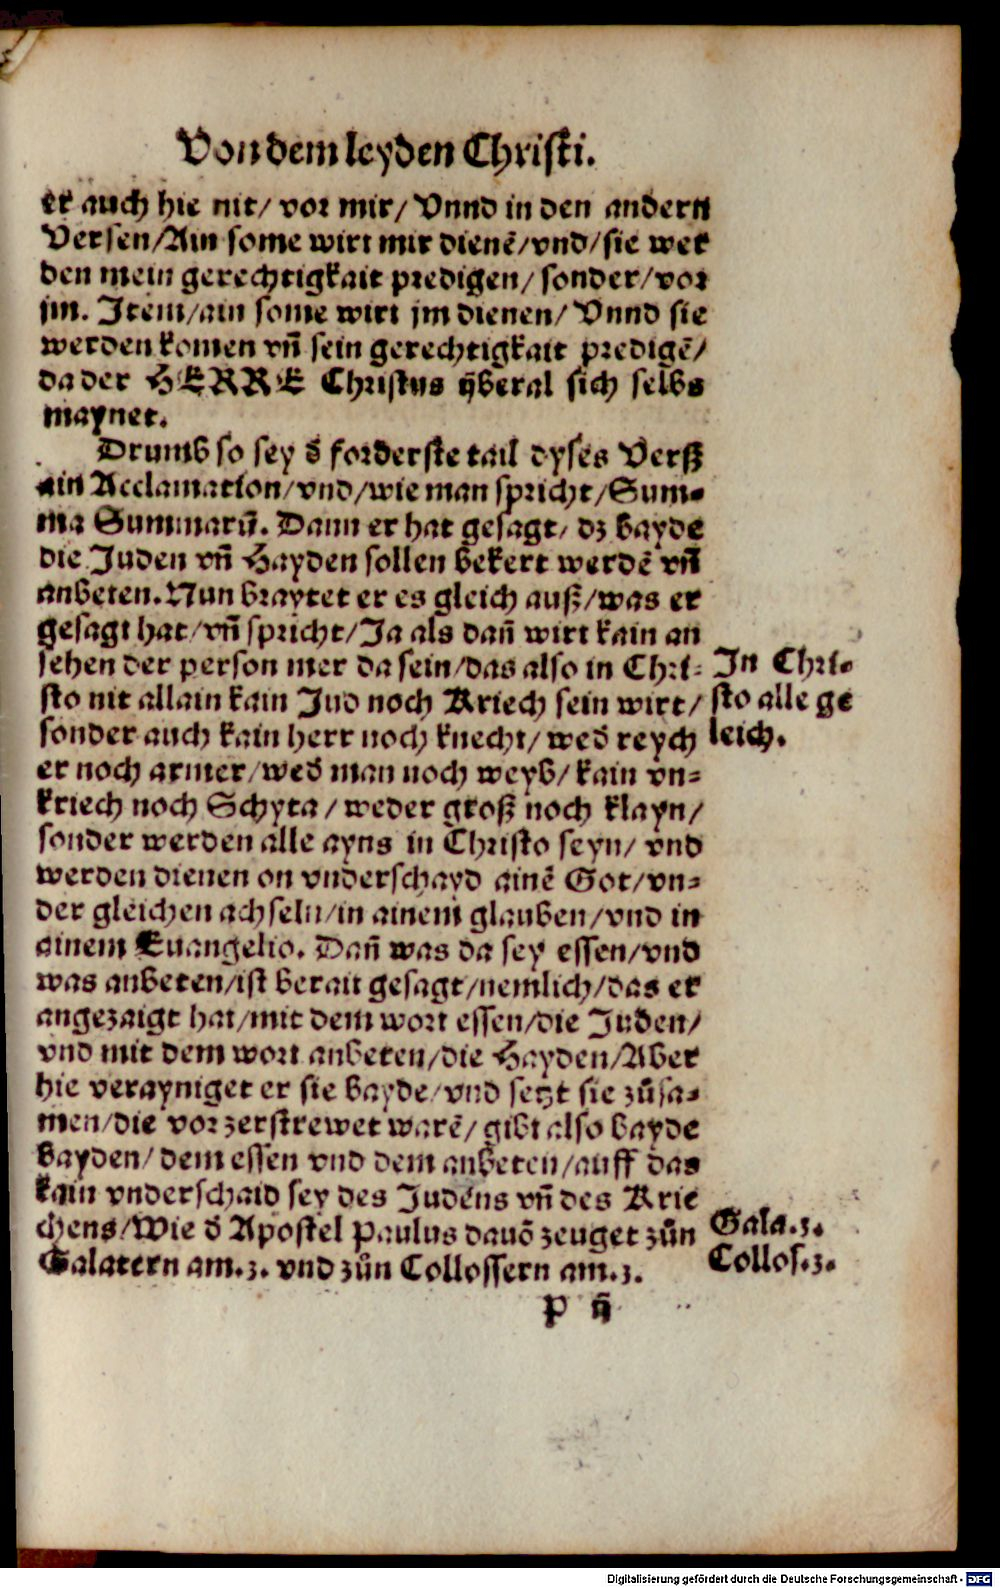 Von dem leyden Christi.
er auch hie nit/ vor mir/ Vnnd in den andern
Versen/Ain some wirt mir dienẽ/vnd/sie wer
den mein gerechtigkait predigen/ sonder/vor
jm. Item/ain some wirt jm dienen/ Vnnd sie
werden komen vñ sein gerechtigkait predigẽ/
da der HERRE Christus ÿberal sich selbs
maynet.
Drumb so sey d̃ forderste tail dyses Verß
ain Acclamation/vnd/wie man spricht/Sum-
ma Summarũ. Dann er hat gesagt/ dz bayde
die Juden vñ Hayden sollen bekert werdẽ vñ
anbeten. Nun braytet er es gleich auß/was er
gesagt hat/vñ spricht/Ja als dañ wirt kain an
sehen der person mer da sein/das also in Chri-
sto nit allain kain Jud noch Kriech sein wirt/
sonder auch kain herr noch knecht/ wed̃ reych
er noch armer/wed̃ man noch weyb/ kain vn-
kriech noch Schyta/ weder groß noch klayn/
sonder werden alle ayns in Christo seyn/ vnd
werden dienen on vnderschayd ainẽ Got/vn-
der gleichen achseln/in ainem glauben/vnd in
ainem Euangelio. Dañ was da sey essen/vnd
was anbeten/ist berait gesagt/nemlich/das er
angezaigt hat/mit dem wort essen/die Juden/
vnd mit dem wort anbeten/die Hayden/Aber
hie verayniget er sie bayde/vnd setzt sie zůsa-
men/die vor zerstrewet warẽ/ gibt also bayde
bayden/ dem essen vnd dem anbeten/auff das
kain vnderschaid sey des Judens vñ des Krie
chens/Wie d̃ Apostel Paulus dauõ zeuget zůn
Galatern am.3. vnd zůn Collossern am.3.
In Chri-
sto alle ge
leich.
Gala.3.
Collos.3.
P ij
Digitalisierung gefördert durch die Deutsche Forschungsgemeinschaft - DFG